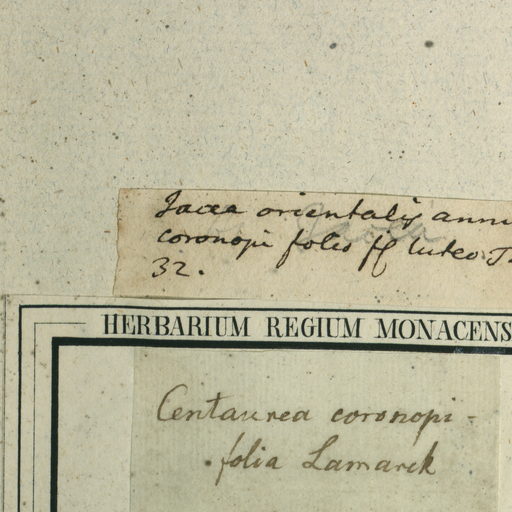 Jacea orientalis annu
coronopi folio fl luteo T
32.
HERBARIUM REGIUM MONACENS
Centaurea coronopi-
folia Lamarck